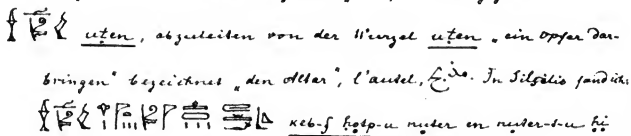 uten, abzuleiten von der Wurzel uten „ein Opfer dar-
bringen" bezeichnet „den Altar", l'autel, In Silsilis fand ich:
keb-f hotp-u nuter en nuter-s-u hi